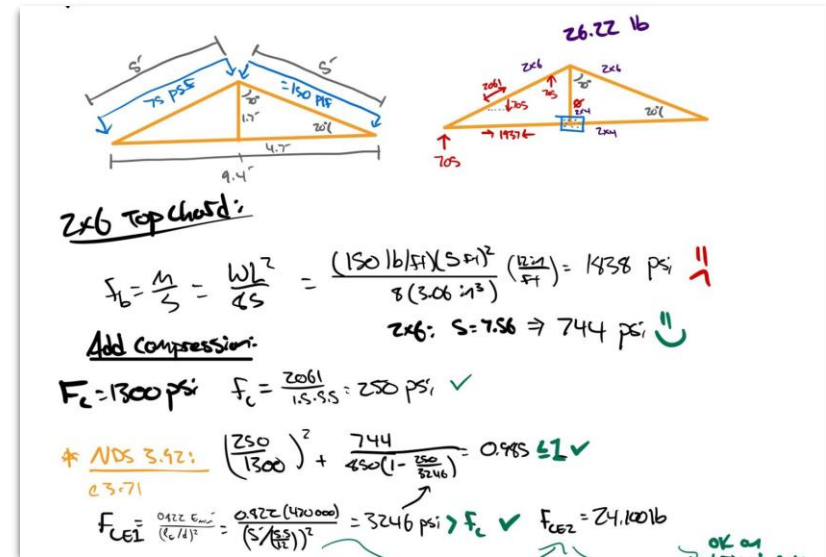 26.22 lb
5'
5'
75 PSF
=150 PLF
20°
1.7'
20°
4.7'
9.4'
2x6
2x6
2061
705
705
2x4
20°
→ 1937 ←
2x4
705
2x6 Top Chord:
f_b = M/S = WL²/8S = (150 lb/ft)(5 ft)²/8(3.06 in³) (12in/ft) = 1838 psi
2x6: S=7.56 ⇒ 744 psi
Add Compression:
F_c = 1300 psi f_c = 2061/1.5·5.5 = 250 psi ✓
* NDS 3.92: (250/1300)² + 744/850(1 - 250/3246) = 0.985 ≤1 ✓
e3.71
F_CE1 = 0.822 E_min'/(l_e/d)² = 0.822(470000)/(5'/(5.5/12))² = 3246 psi > f_c ✓ F_CE2 = 24,100 lb
OK on